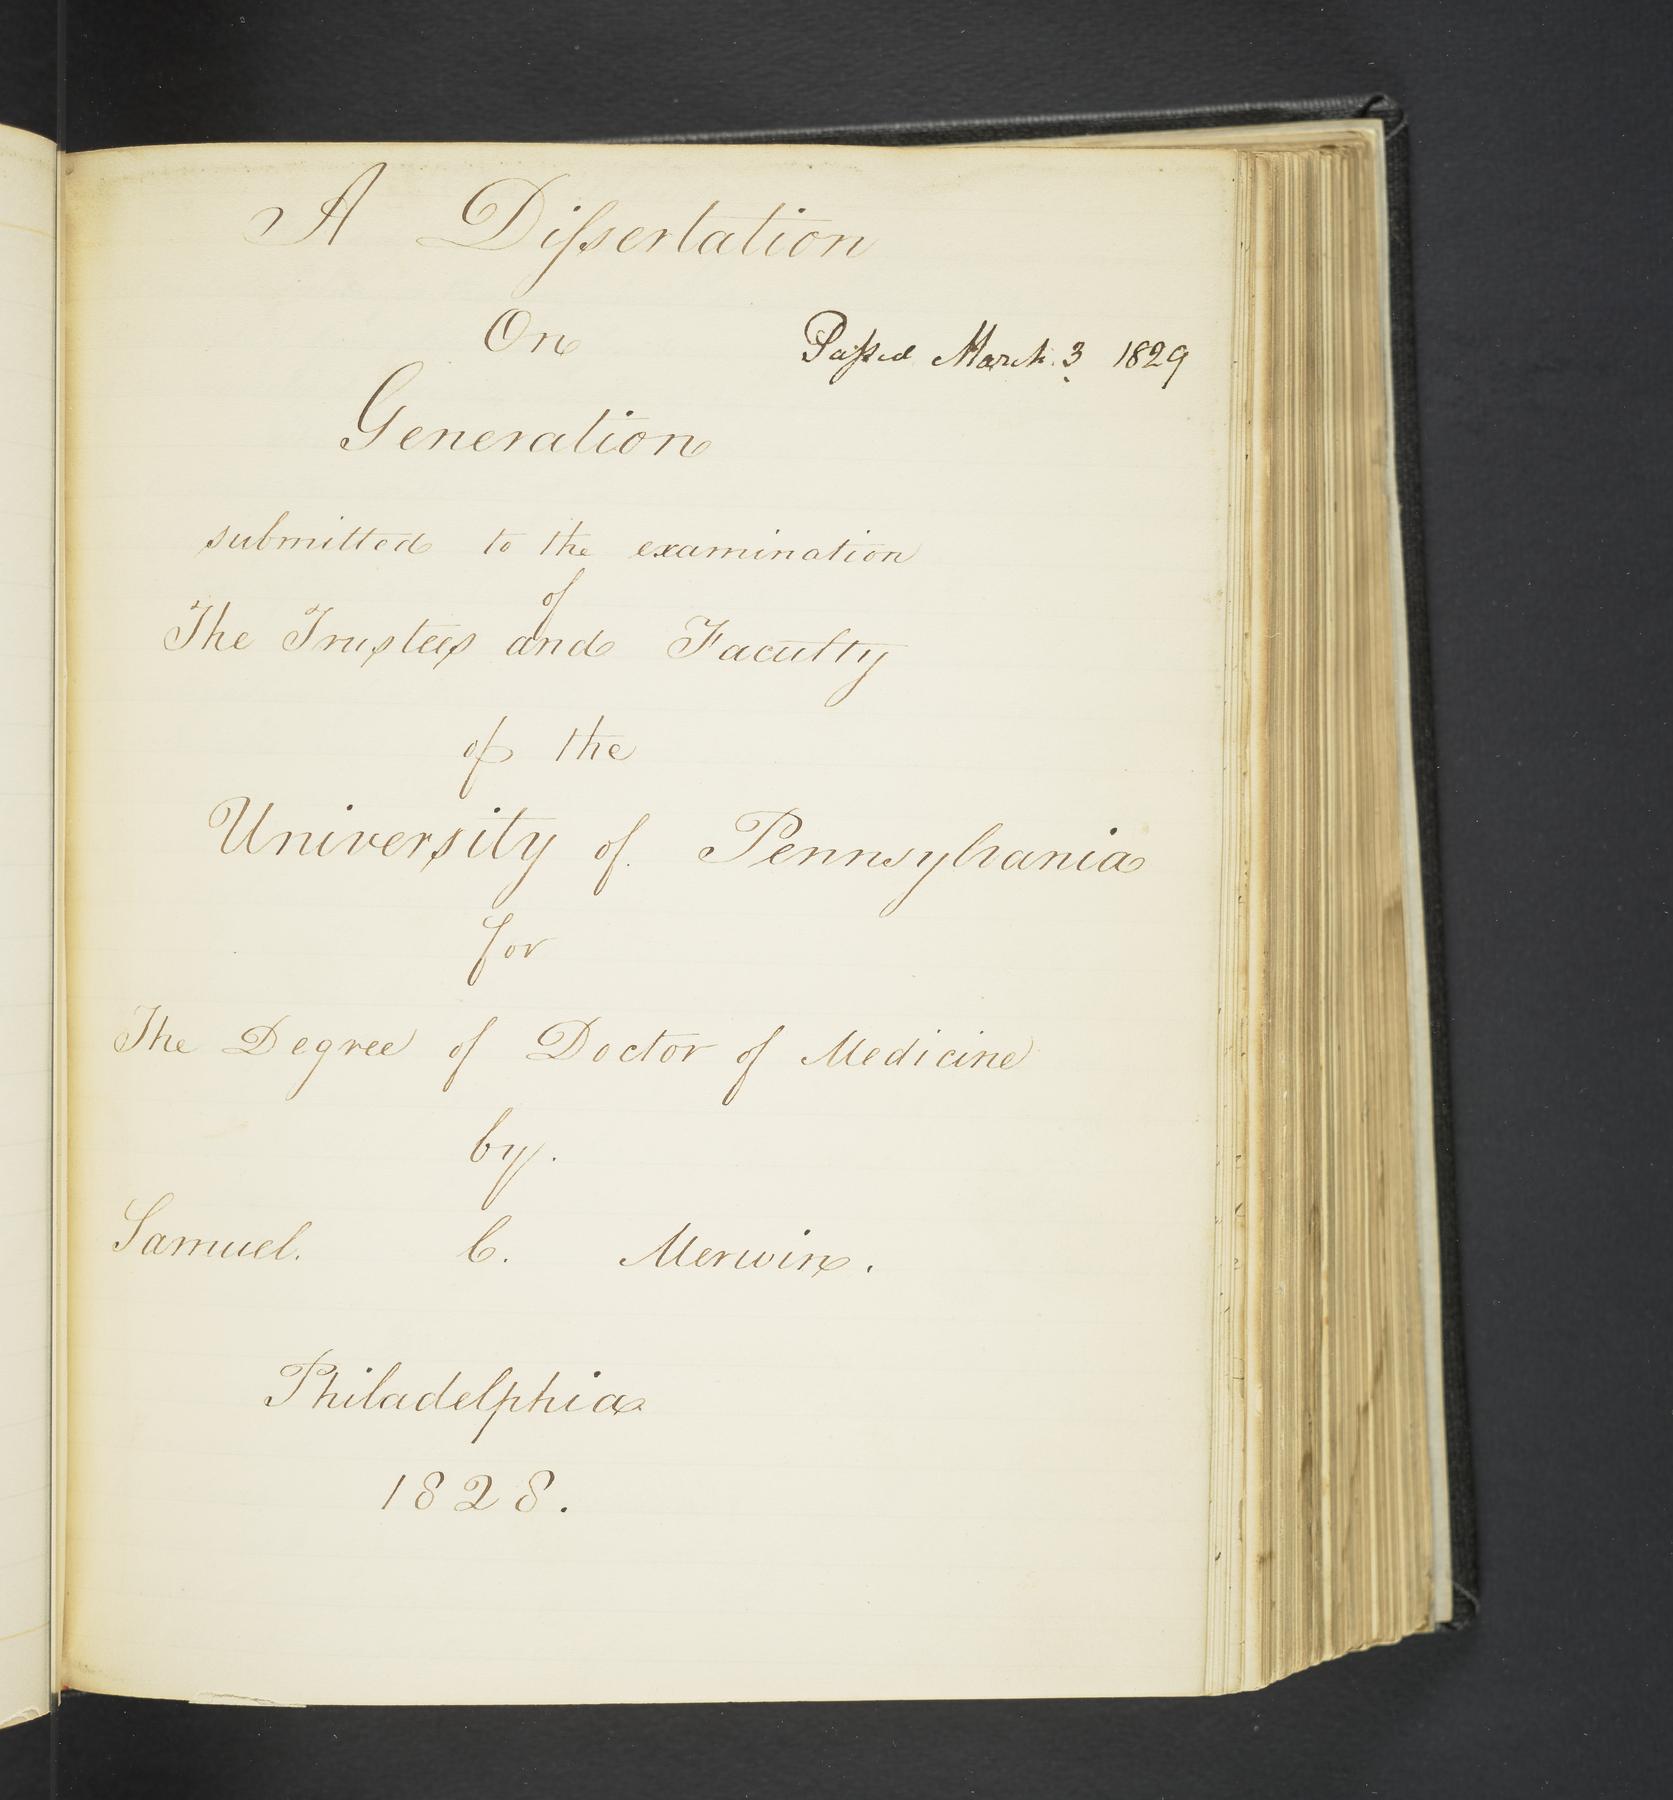 A Dissertation
On
Passed March. 3 1829
Generation
submitted to the examination
of
The Trustees and Faculty
of the
University of Pennsylvania
for
The Degree of Doctor of Medicine
by.
Samuel. C. Merwin.
Philadelphia
1828.